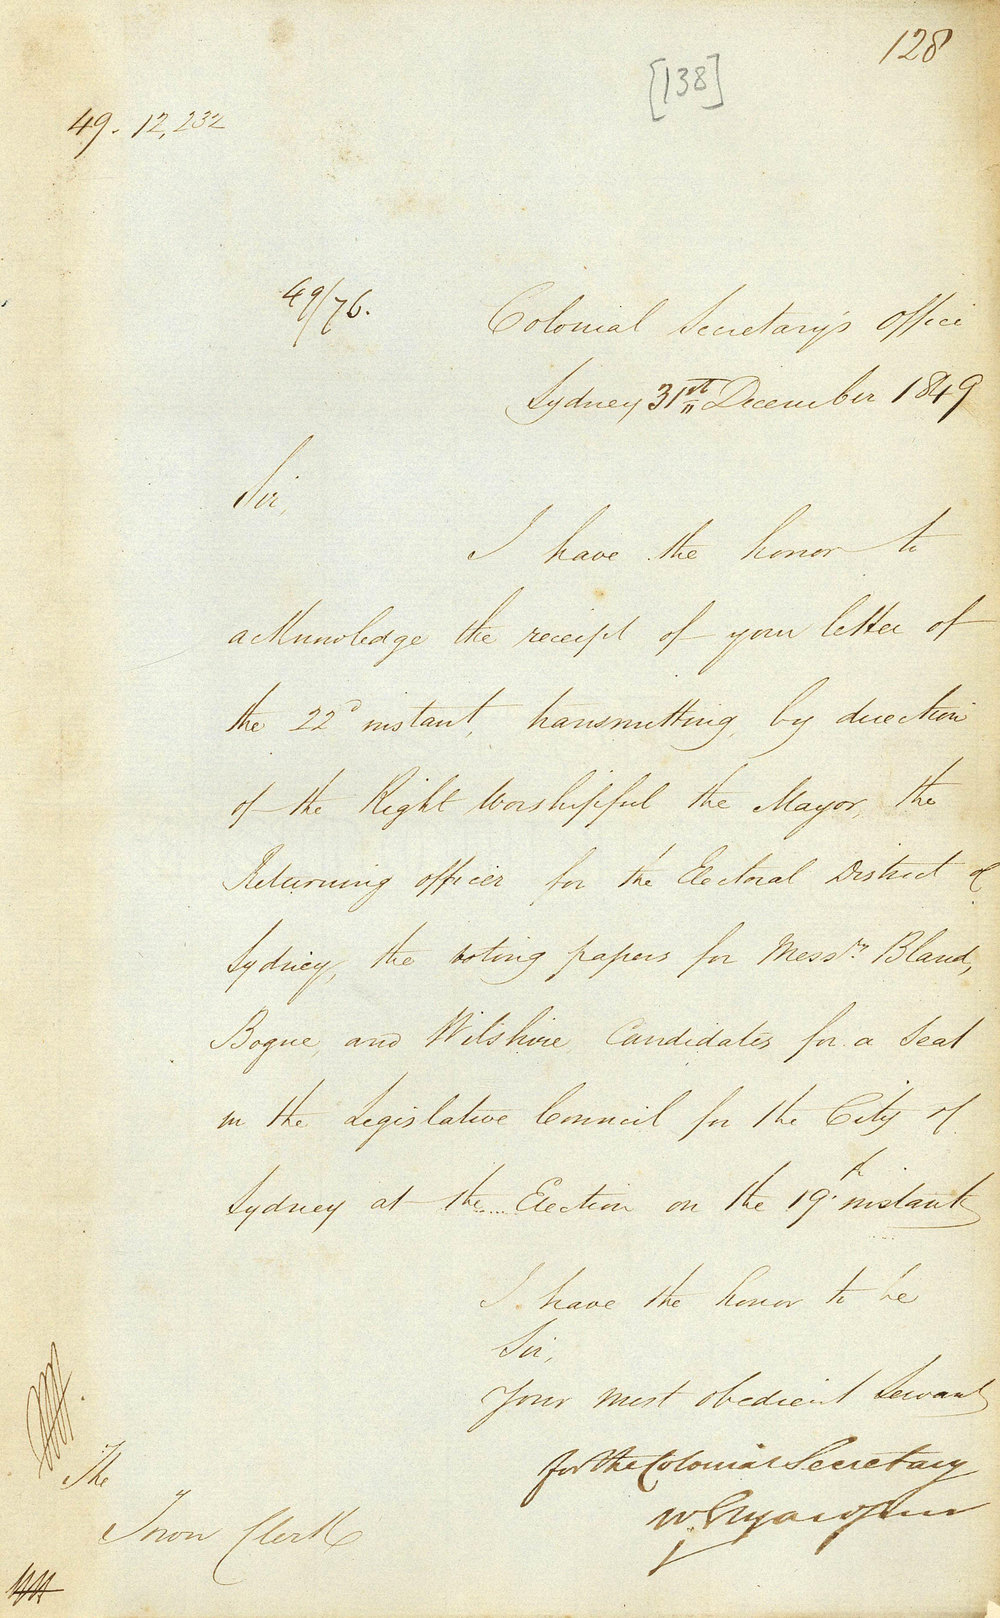 128
[138]
49. 12,232
49/76.
Colonial Secretary's Office
Sydney 31st December 1849
Sir,
I have the honor to
acknowledge the receipt of your letter of
the 22d instant, transmitting, by direction
of the Right Worshipful the Mayor, the
Returning officer for the Electoral District of
Sydney, the voting papers for Messrs. Bland,
Bogue and Wilshire Candidates for a Seat
in the Legislative Council for the City of
Sydney at the Election on the 19th instant
I have the honor to be
Sir,
Your most obedient Servant
for the Colonial Secretary
The
Town Clerk